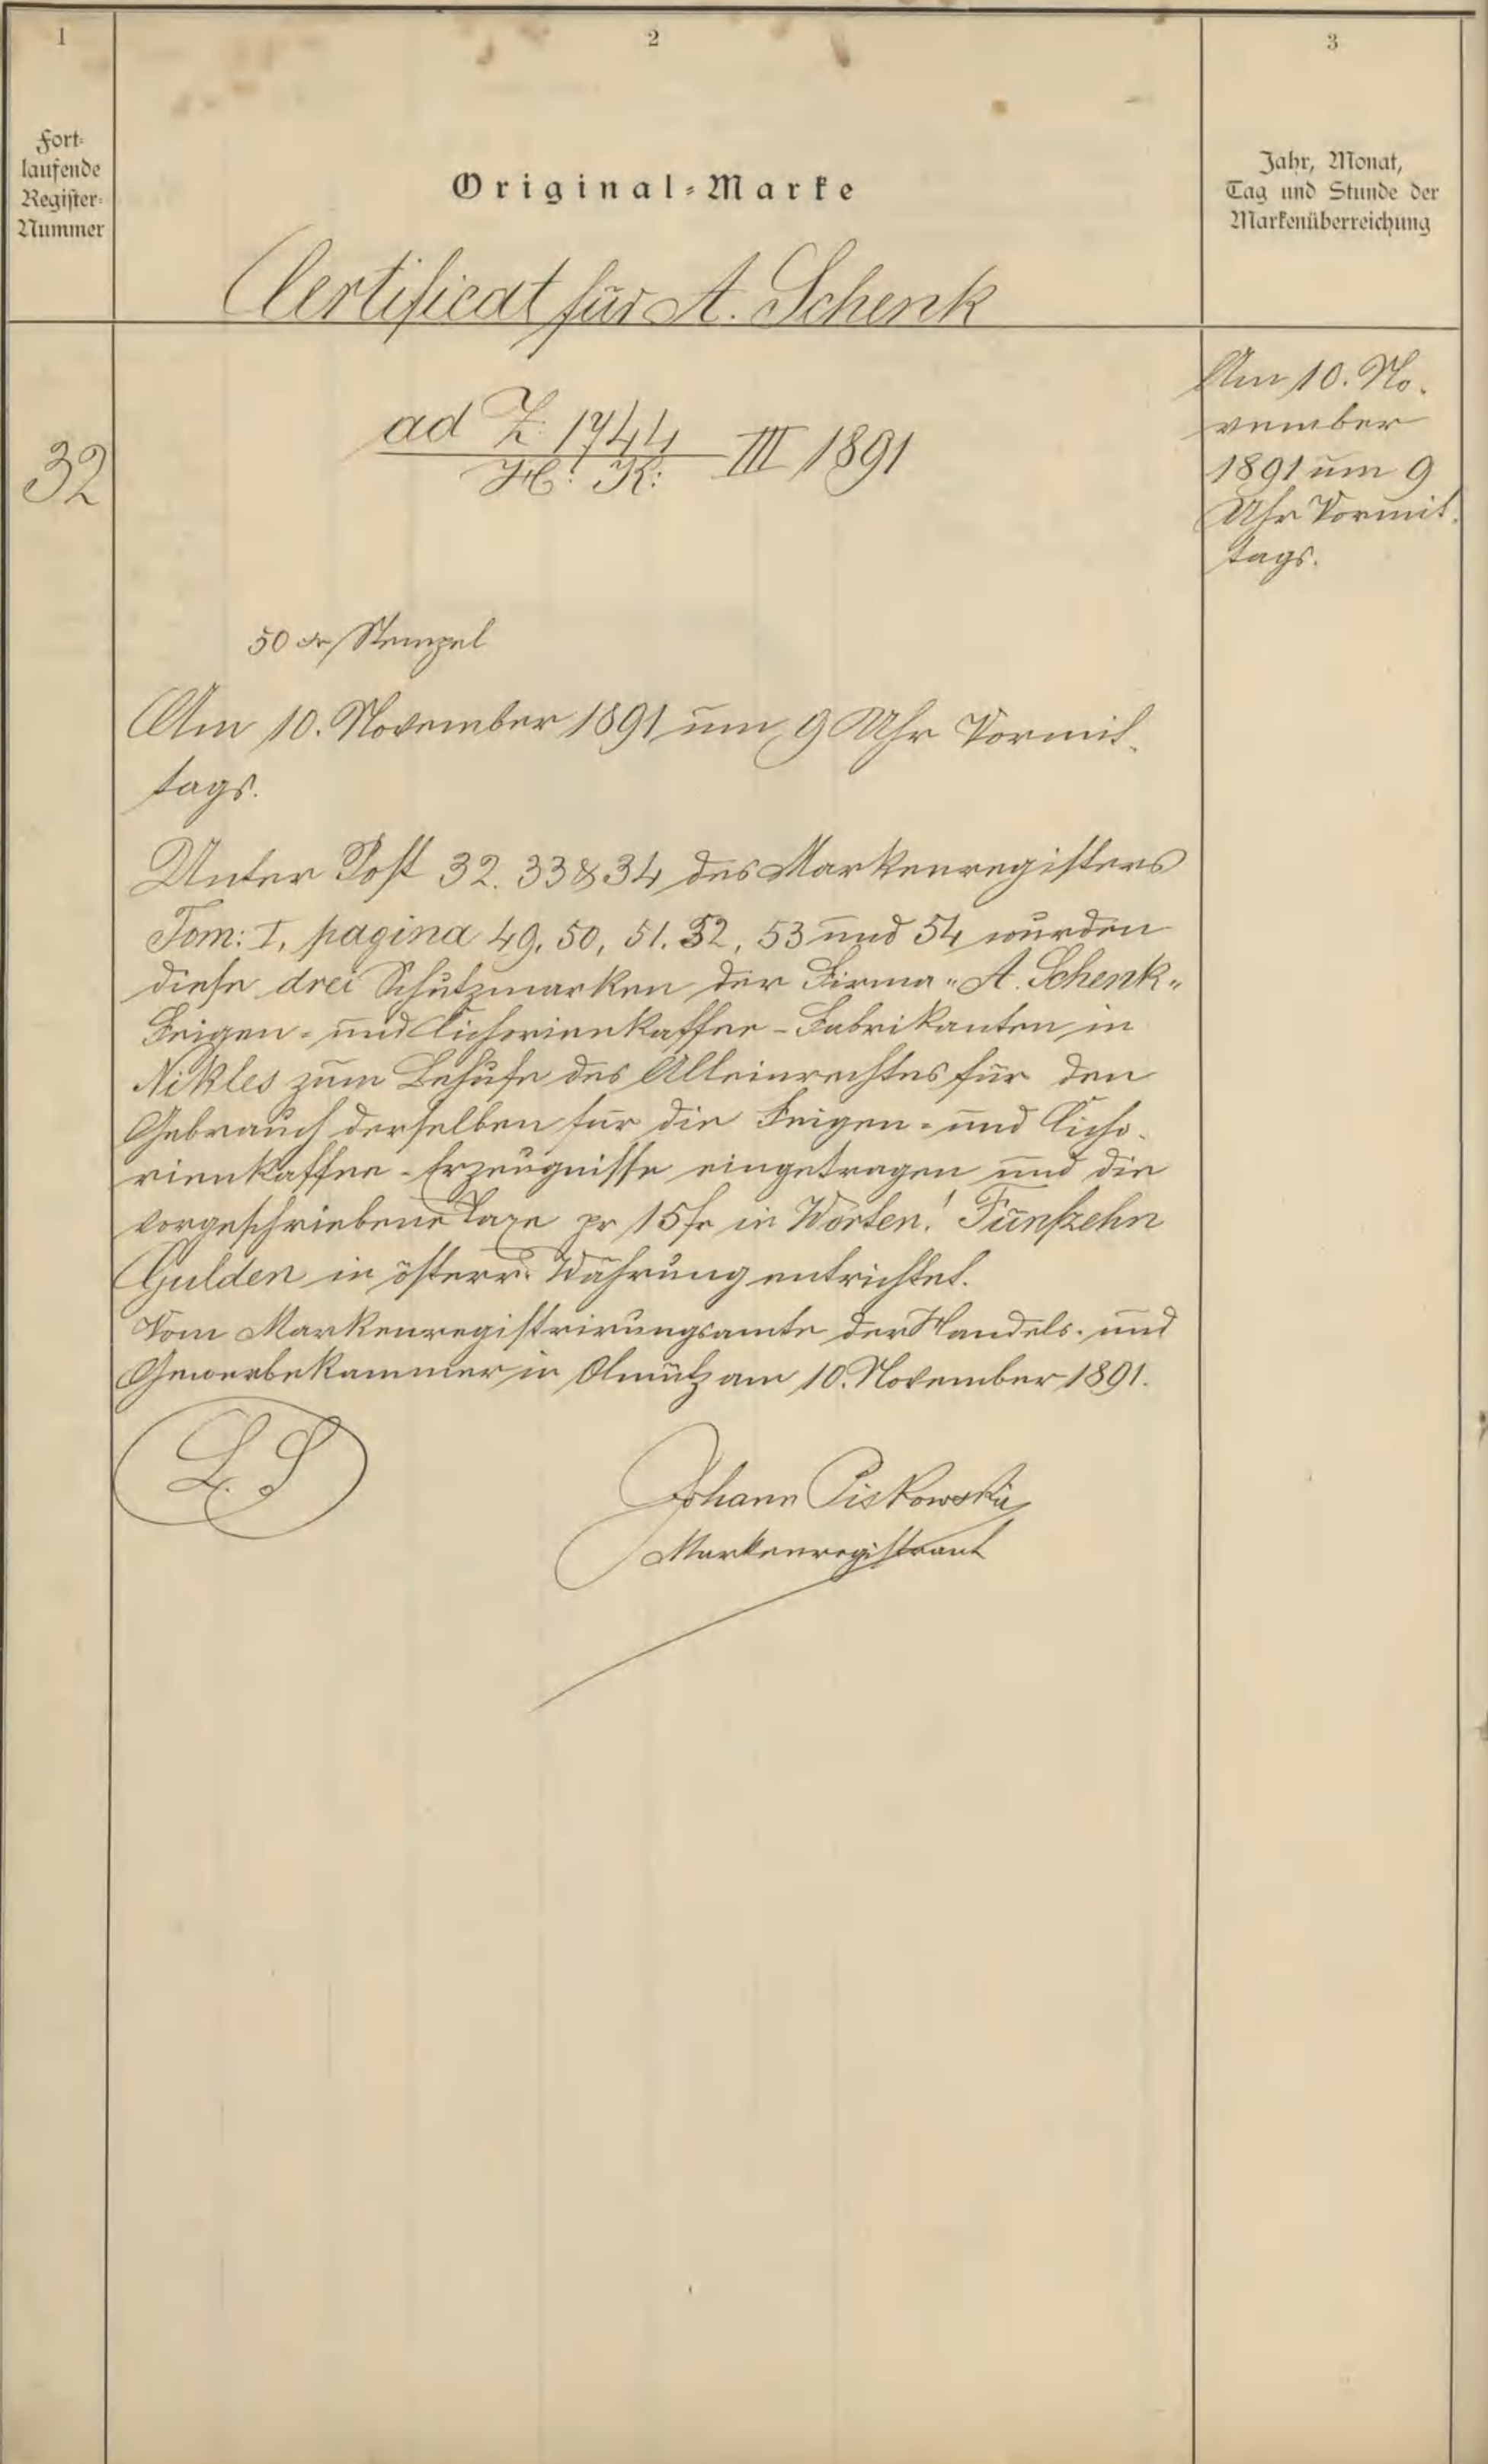 1
2
3
Fort-
laufende
Register-
Nummer
Original-Marke
Jahr, Monat,
Tag und Stunde der
Markenüberreichung
Certificat für A. Schenk
32
ad Z. 1744 III 1891
H: K:
Am 10. No-
vember
1891 um 9
Uhr Vormit-
tags.
50 xr Stempel
Am 10. November 1891 um 9 Uhr Vormit-
tags.
Unter Post 32. 33 & 34 des Markenregisters
Tom: I, pagina 49, 50, 51. 52, 53 und 54 wurden
diese drei Schutzmarken der Firma "A. Schenk"
Feigen- und Cichorienkaffee-Fabrikanten in
Nikles zum Behufe des Alleinrechtes für den
Gebrauch derselben für die Feigen- und Cicho-
rienkaffee-Erzeugnisse eingetragen und die
vorgeschriebene Taxe pr 15 fr in Worten: Fünfzehn
Gulden in österr. Währung entrichtet.
Vom Markenregistrirungsamte der Handels- und
Gewerbekammer in Olmütz am 10. November 1891.
L. S
Johann Piskowski
Markenregistrant